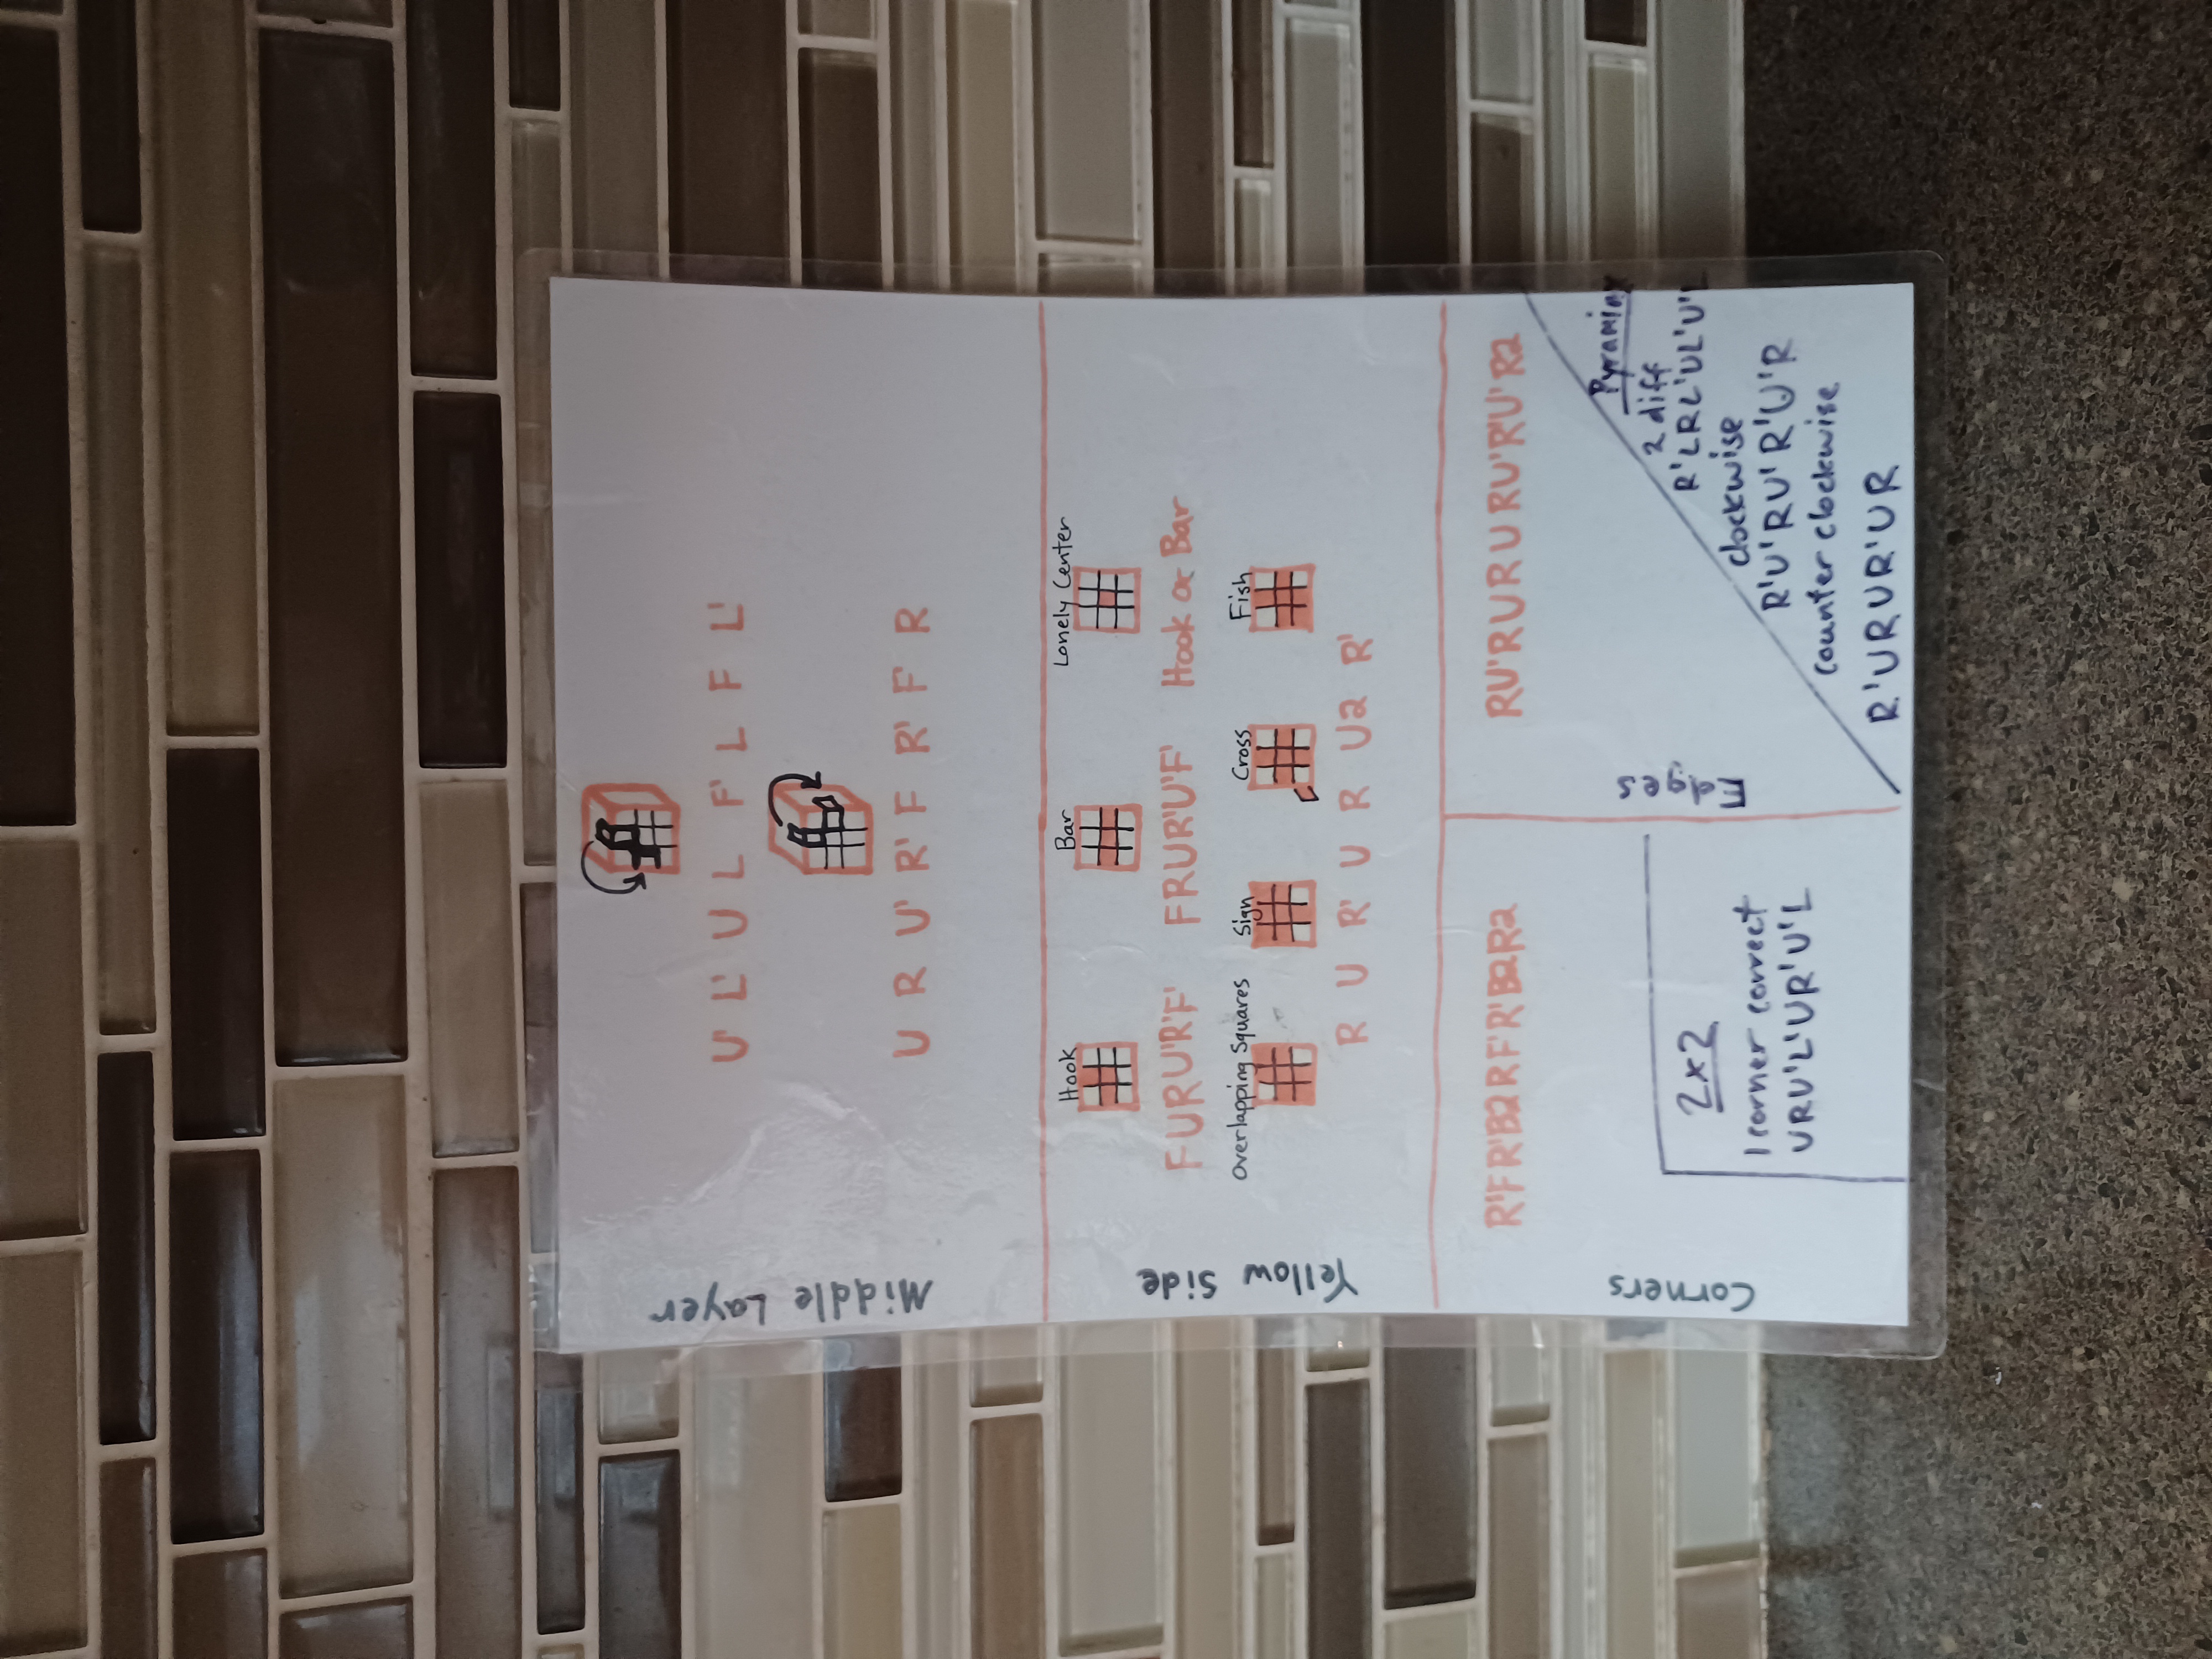 Middle Layer
U' L' U L F' L F L'
U R U' R' F R' F' R
Yellow Side
Hook Bar Lonely Center
FURU'R'F' FRUR'U'F' Hook or Bar
Overlapping Squares Sign Cross Fish
R U R' U R U2 R'
Corners
R'FR'B2RF'R'B2R2
2x2
1 corner correct
URU'L'UR'U'L
Edges
RU'RURURU'R'U'R2
Pyraminx
2 diff
R'LRL'UL'U'L
clockwise
R'U'RU'R'U'R
counter clockwise
R'URUR'UR